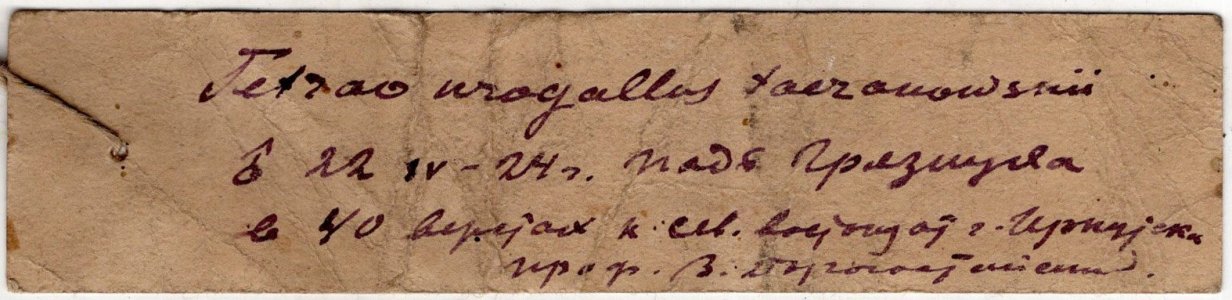 Tetrao urogallus taczanowskii
♂ 22 IV - 24 г. Падь Грязнуха
в 40 верстах к сев. востоку от г. Иркутска
проф. В. Дорогостайский.